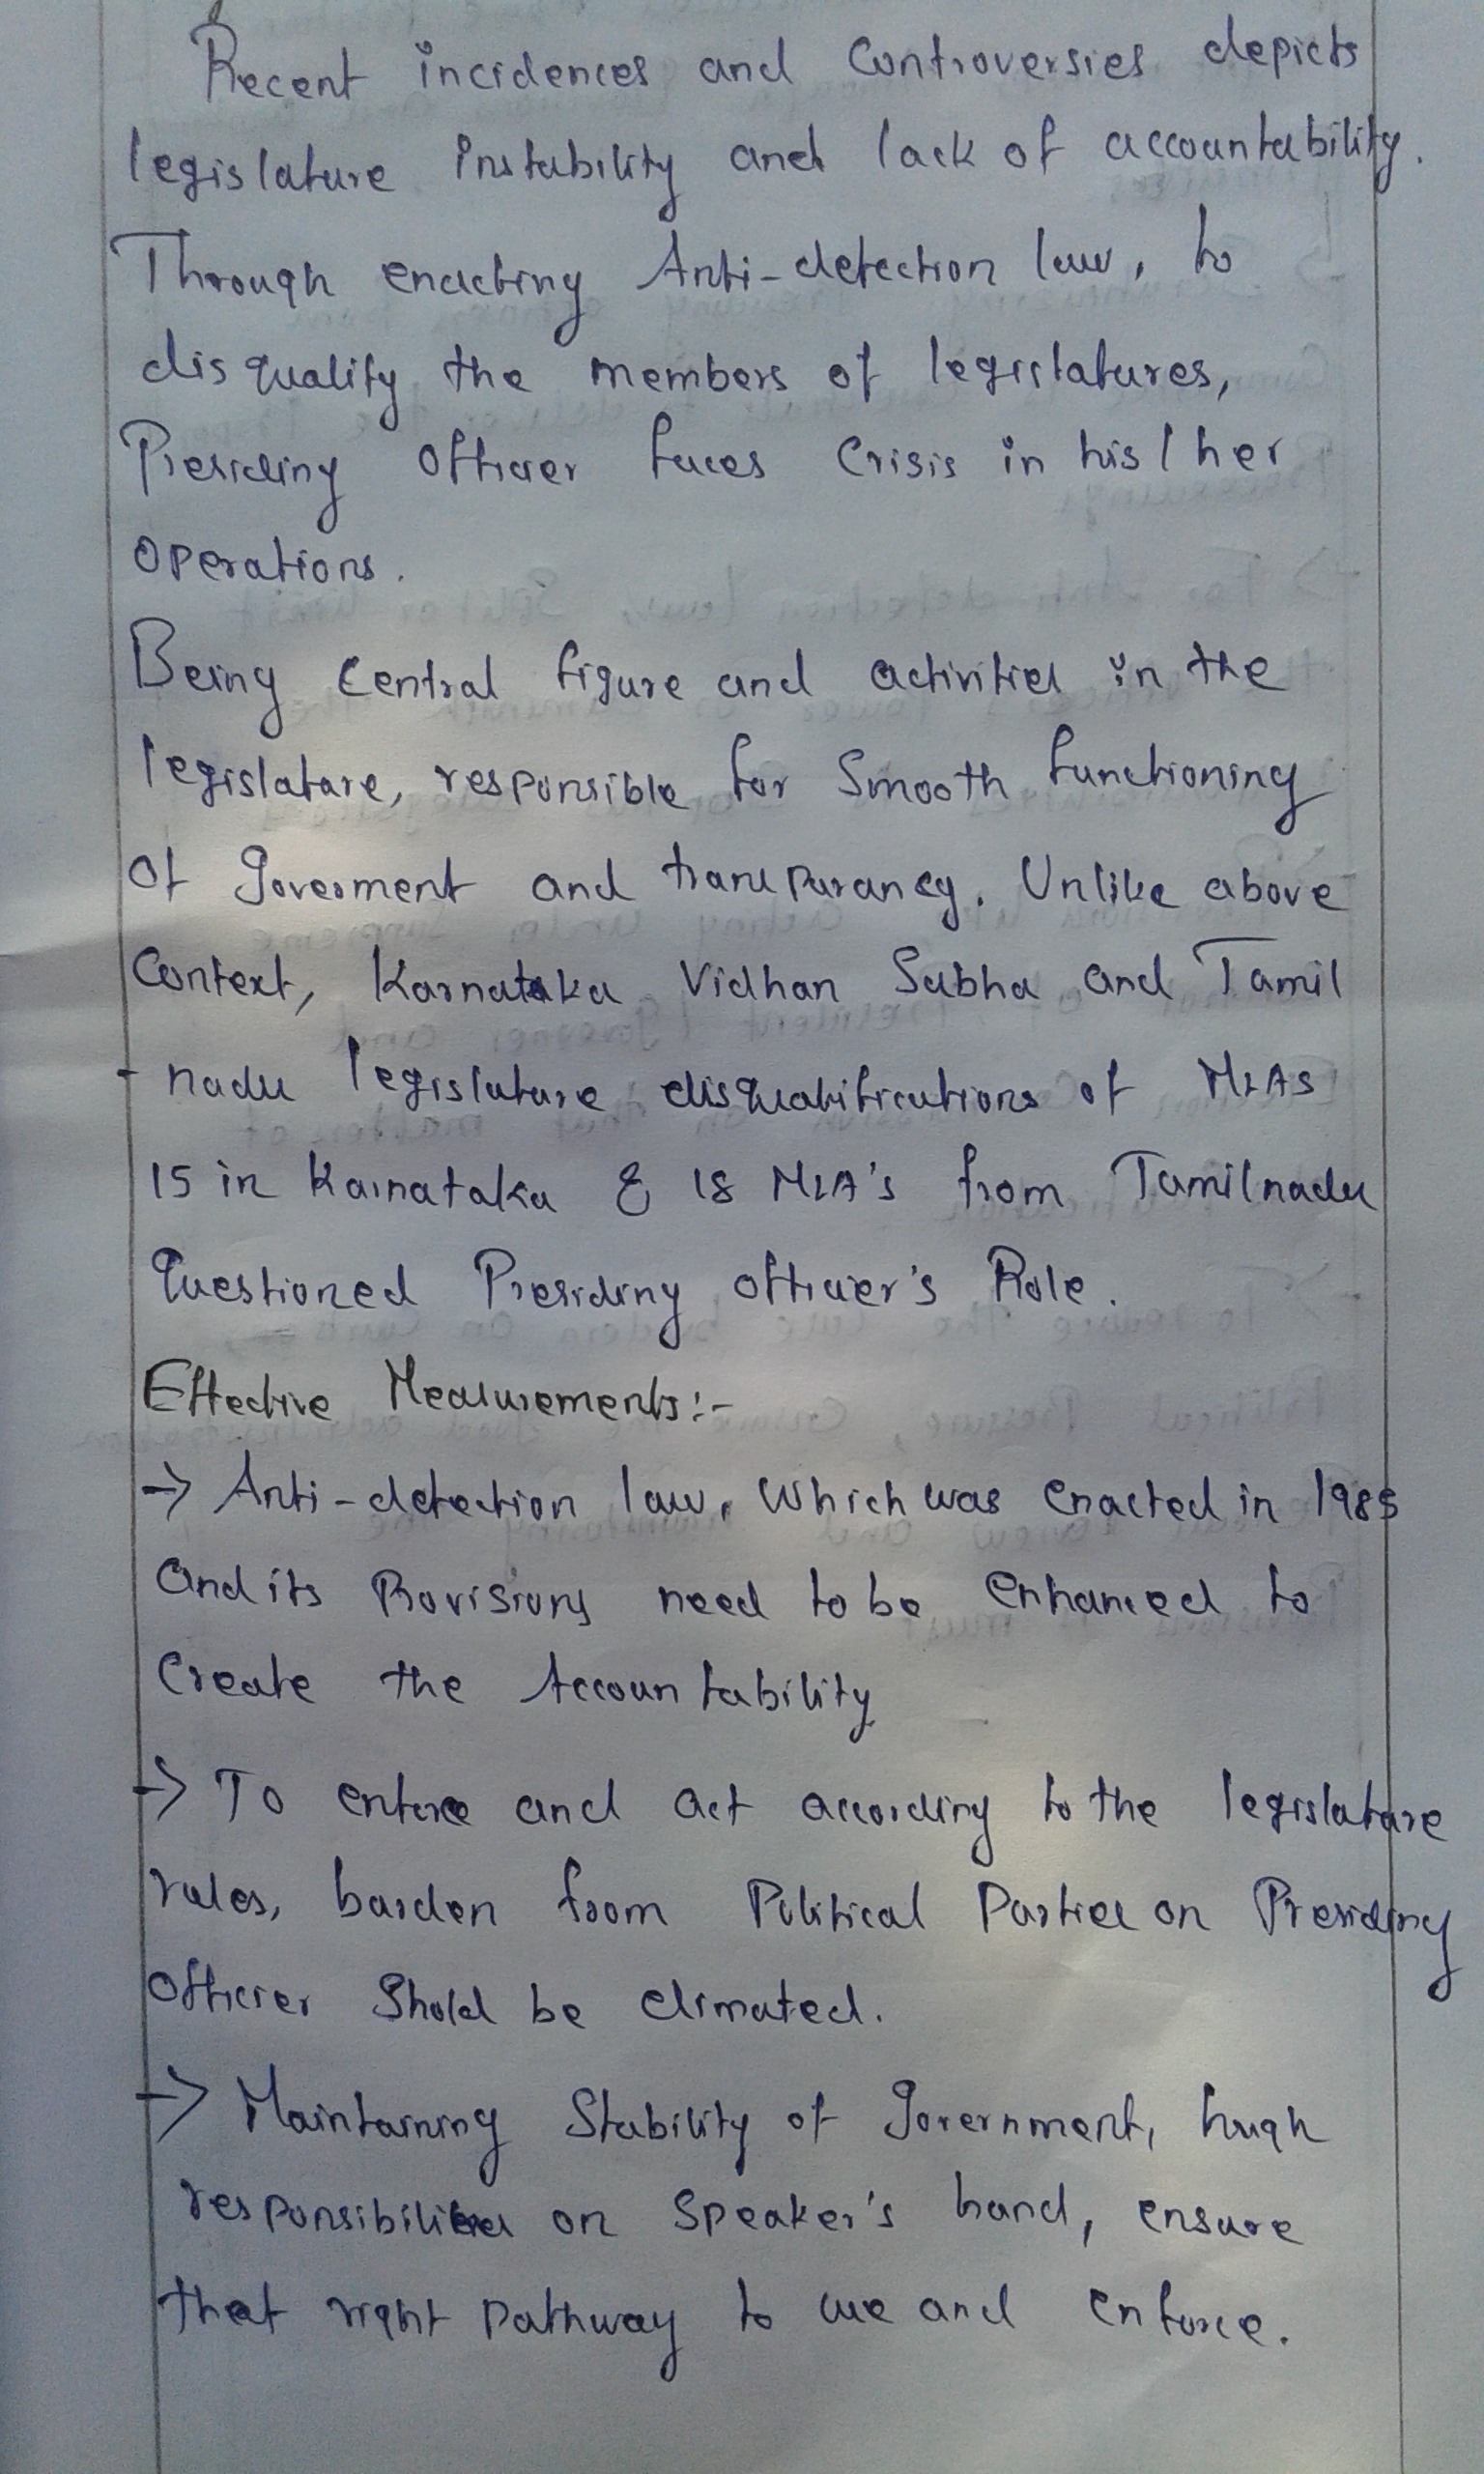 Recent incidences and Controversies depicts
legislature instability and lack of accountability.
Through enacting Anti-defection law, to
disqualify the members of legislatures,
Presiding Officer faces Crisis in his/her
Operations.
Being Central figure and activities in the
legislature, responsible for Smooth functioning
of Goverment and transparancy. Unlike above
Context, Karnataka Vidhan Sabha and Tamil
- nadu legislature disqualifications of MLAs
15 in Karnataka & 18 MLA's from Tamilnadu
Questioned Presiding officer's Role.
Effective Measurements:-
→ Anti-defection law, which was enacted in 1985
and its Provisions need to be enhanced to
Create the Accountability
→ To enforce and act according to the legislature
rules, burden from Political Parties on Presiding
Officier Shold be elimated.
→ Maintaining Stability of Government, hugh
responsibilities on Speaker's hand, ensure
that right pathway to use and enforce.